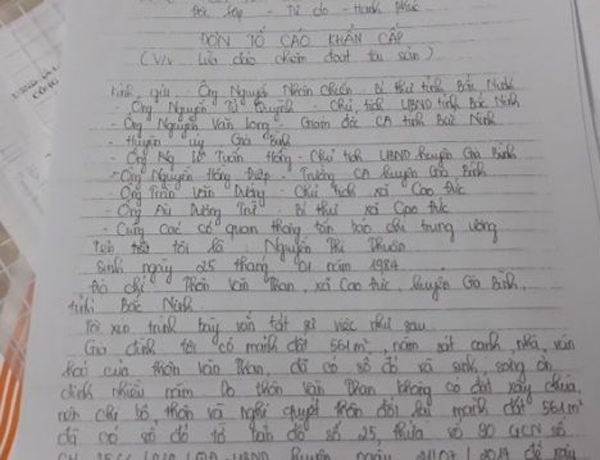 Độc lập - Tự do - Hạnh phúc
ĐƠN TỐ CÁO KHẨN CẤP
(V/v Lừa đảo chiếm đoạt tài sản)
Kính gửi: - Ông Nguyễn Nhân Chiến - Bí thư tỉnh Bắc Ninh
- Ông Nguyễn Tử Quỳnh - Chủ tịch UBND tỉnh Bắc Ninh
- Ông Nguyễn Văn Long - Giám đốc CA tỉnh Bắc Ninh
- Huyện ủy Gia Bình
- Ông Ng Tuấn Hồng - Chủ tịch UBND huyện Gia Bình
- Ông Nguyễn Hồng Điệp - Trưởng CA huyện Gia Bình
- Ông Trần Văn Dương - Chủ tịch xã Cao Đức
- Ông Dương Trữ - Bí thư xã Cao Đức
- Cùng các cơ quan thông tấn báo chí trung ương
Tên tôi là Nguyễn Thị Thuấn
Sinh ngày 25 tháng 01 năm 1984
Địa chỉ Thôn Văn Than, xã Cao Đức, huyện Gia Bình,
tỉnh Bắc Ninh
Tôi xin trình bày vắn tắt sự việc như sau
Gia đình tôi có mảnh đất 561m², nằm sát cạnh nhà văn
hoá của thôn Văn Than, đã có sổ đỏ và sinh sống ổn
định nhiều năm. Do thôn Văn Than không có đất xây chùa,
nên chi bộ, thôn và nghị quyết thôn đổi lại mảnh đất 561m²
đã có sổ đỏ tờ bản đồ số 25, thửa số 90 GCN số
UBND huyện ngày 21/07/2017 để xây